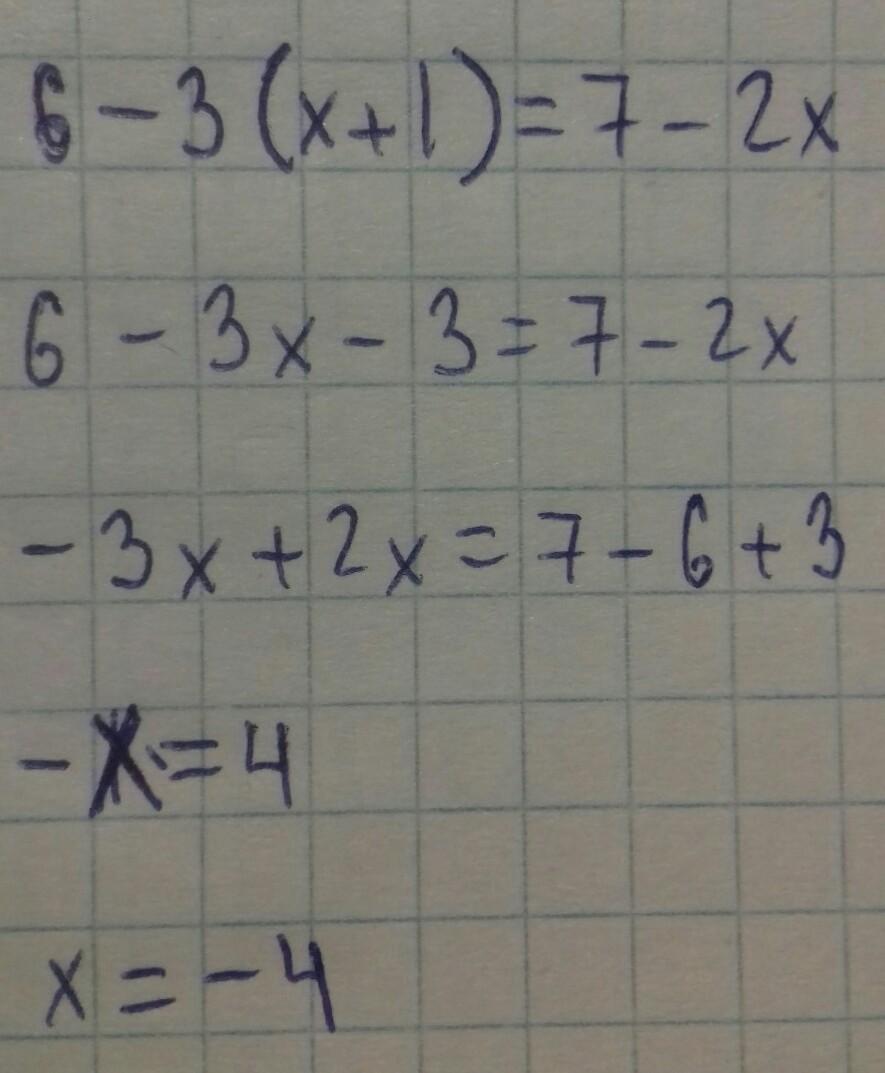 6 - 3(x+1) = 7 - 2x
6 - 3x - 3 = 7 - 2x
- 3x + 2x = 7 - 6 + 3
- x = 4
x = - 4